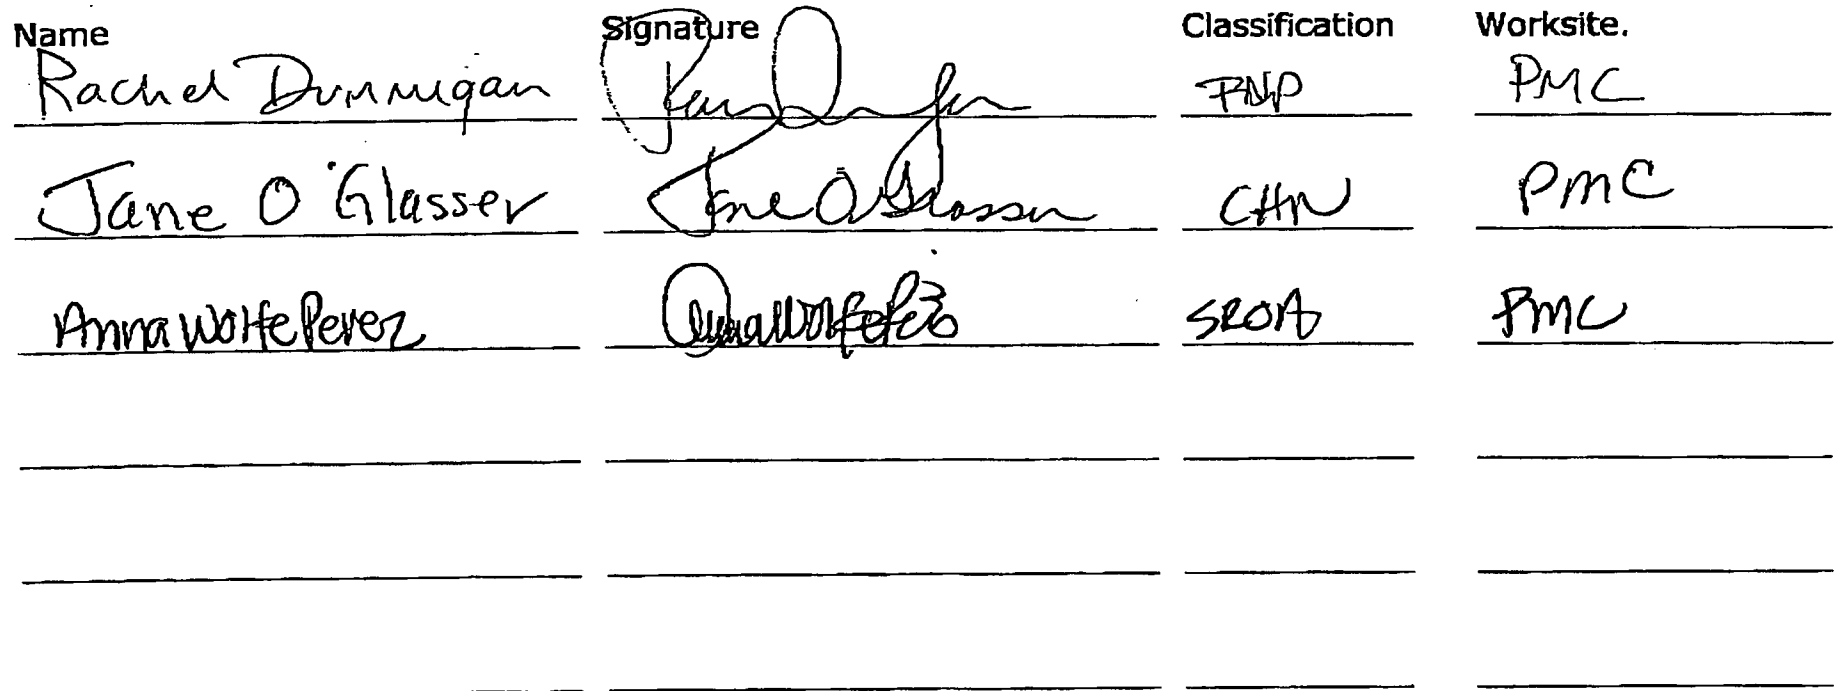 Name Signature Classification Worksite.
Rachel Dunnigan PMC
Jane O'Glasser Jane O'Glasser CHN PMC
Anna Wolfe Perez Anna Wolfe Perez SROA PMC